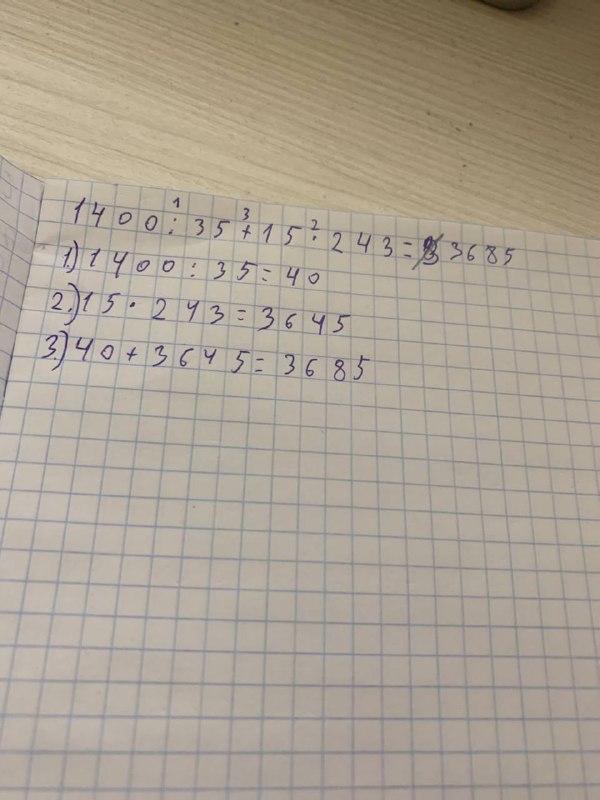 1400:35+15·243=3685
1.)1400:35=40
2.)15·243=3645
3.)40+3645=3685